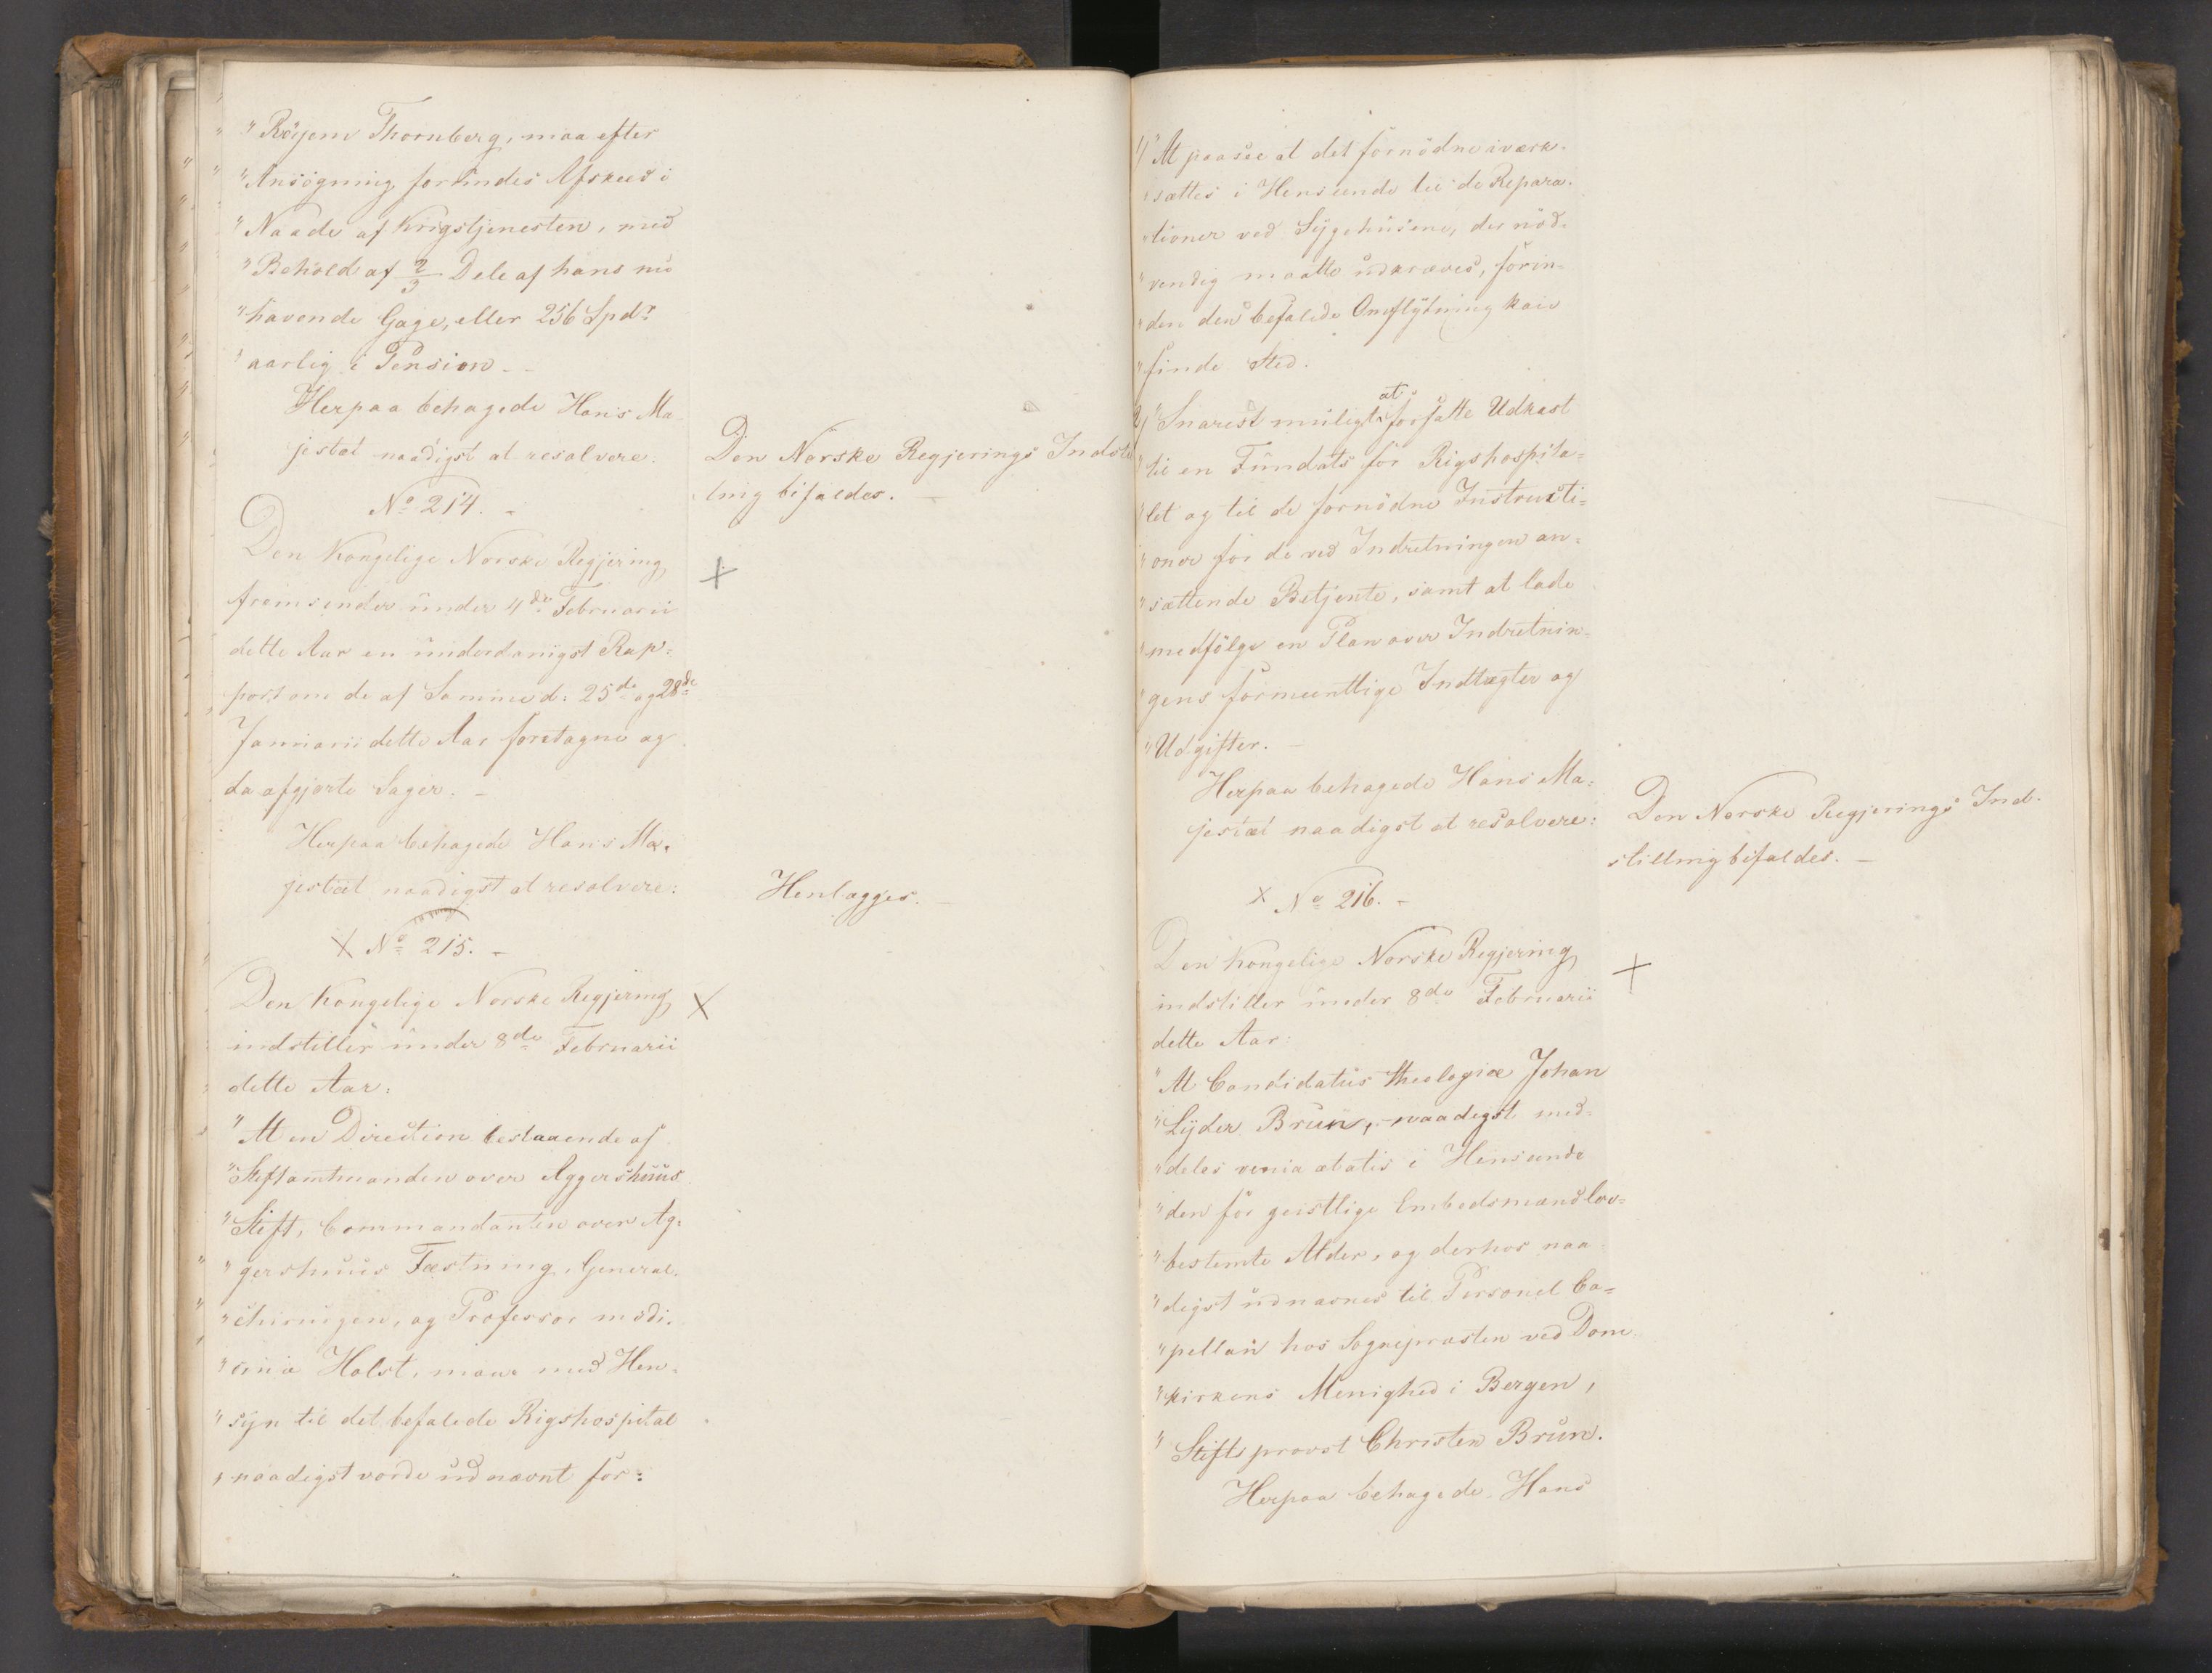 "Röyem Thornberg, maa efter
"Ansögning forundes Afskeed i
"Naade af Krigstjenesten, med
"Behold af 2/3 Dele af hans nu
"havende Gage, eller 256 Spdr
"aarlig i Pension. -
Herpaa behagede Hans Ma-
jestæt naadigst at resolvere:
Den Norske Regjerings Indstil
ling bifaldes. -
No 214. -
Den Kongelige Norske Regjering
fremsender under 4de Februarii
dette Aar en underdanigst Rap=
port om de af Samme d: 25de og 28de
Januarii dette Aar foretagne og
da afgjorte Sager. -
Herpaa behagede Hans Ma-
jestæt naadigst at resolvere:
Henlægges. -
X No 215. -
Den Kongelige Norske Regjering X
indstiller under 8de Februarii
dette Aar:
"At en Direction bestaaende af
"Stiftamtmanden over Aggershuus
"Stift, Commandanten over Ag=
"gershuus Fæstning, General-
"chirurgen, og Professor medi-
"cinæ Holst, maae med Hen-
"syn til det befalede Rigshospital
"naadigst vorde udnævnt for:
1) "At paasee at det fornödne iværk-
"sættes i Henseende til de Repara-
"tioner ved Sygehusene, der nöd-
"vendig maatte udkræves, forin-
"den den befalede Omflytning kan
"finde Sted.
2) "Snarest muligt at forfatte Udkast
"til en Fundats for Rigshospita=
"let og til de fornödne Instructi=
"oner for de ved Indretningen an-
"sættende Betjente, samt at lade
"medfölge en Plan over Indretnin-
"gens formeentlige Indtægter og
"Udgifter. -
Herpaa behagede Hans Ma=
jestæt naadigst at resolvere:
Den Norske Regjerings Ind-
stilling bifaldes. -
X No 216. -
Den Kongelige Norske Regjering
indstiller under 8de Februarii
dette Aar:
"At Candidatus theologiæ Johan
"Lyder Brun, naadigst med-
"deles venia ætatis i Henseende
"den for geistlige Embedsmænd lov=
"bestemte Alder, og derhos naa
"digst udnævnes til Personel Ca=
"pellan hos Sognepræsten ved Dom-
"kirkens Menighed i Bergen,
"Stiftsprovst Christen Brun.
Herpaa behagede Hans